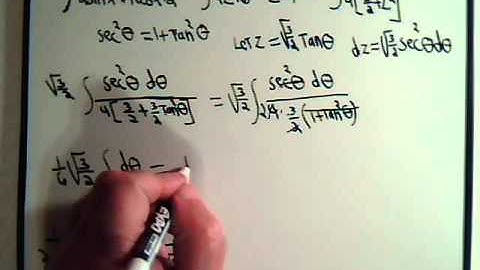 sec²θ = 1 + Tan²θ Let z = √3/2 Tanθ dz = √3/2 sec²θdθ
√3/2 ∫ sec²θ dθ / 4[3/2 + 3/2 Tan²θ] = √3/2 ∫ sec²θ dθ / 4 · 3/2 (1 + Tan²θ)
1/6 √3/2 ∫ dθ = 1
EXPO